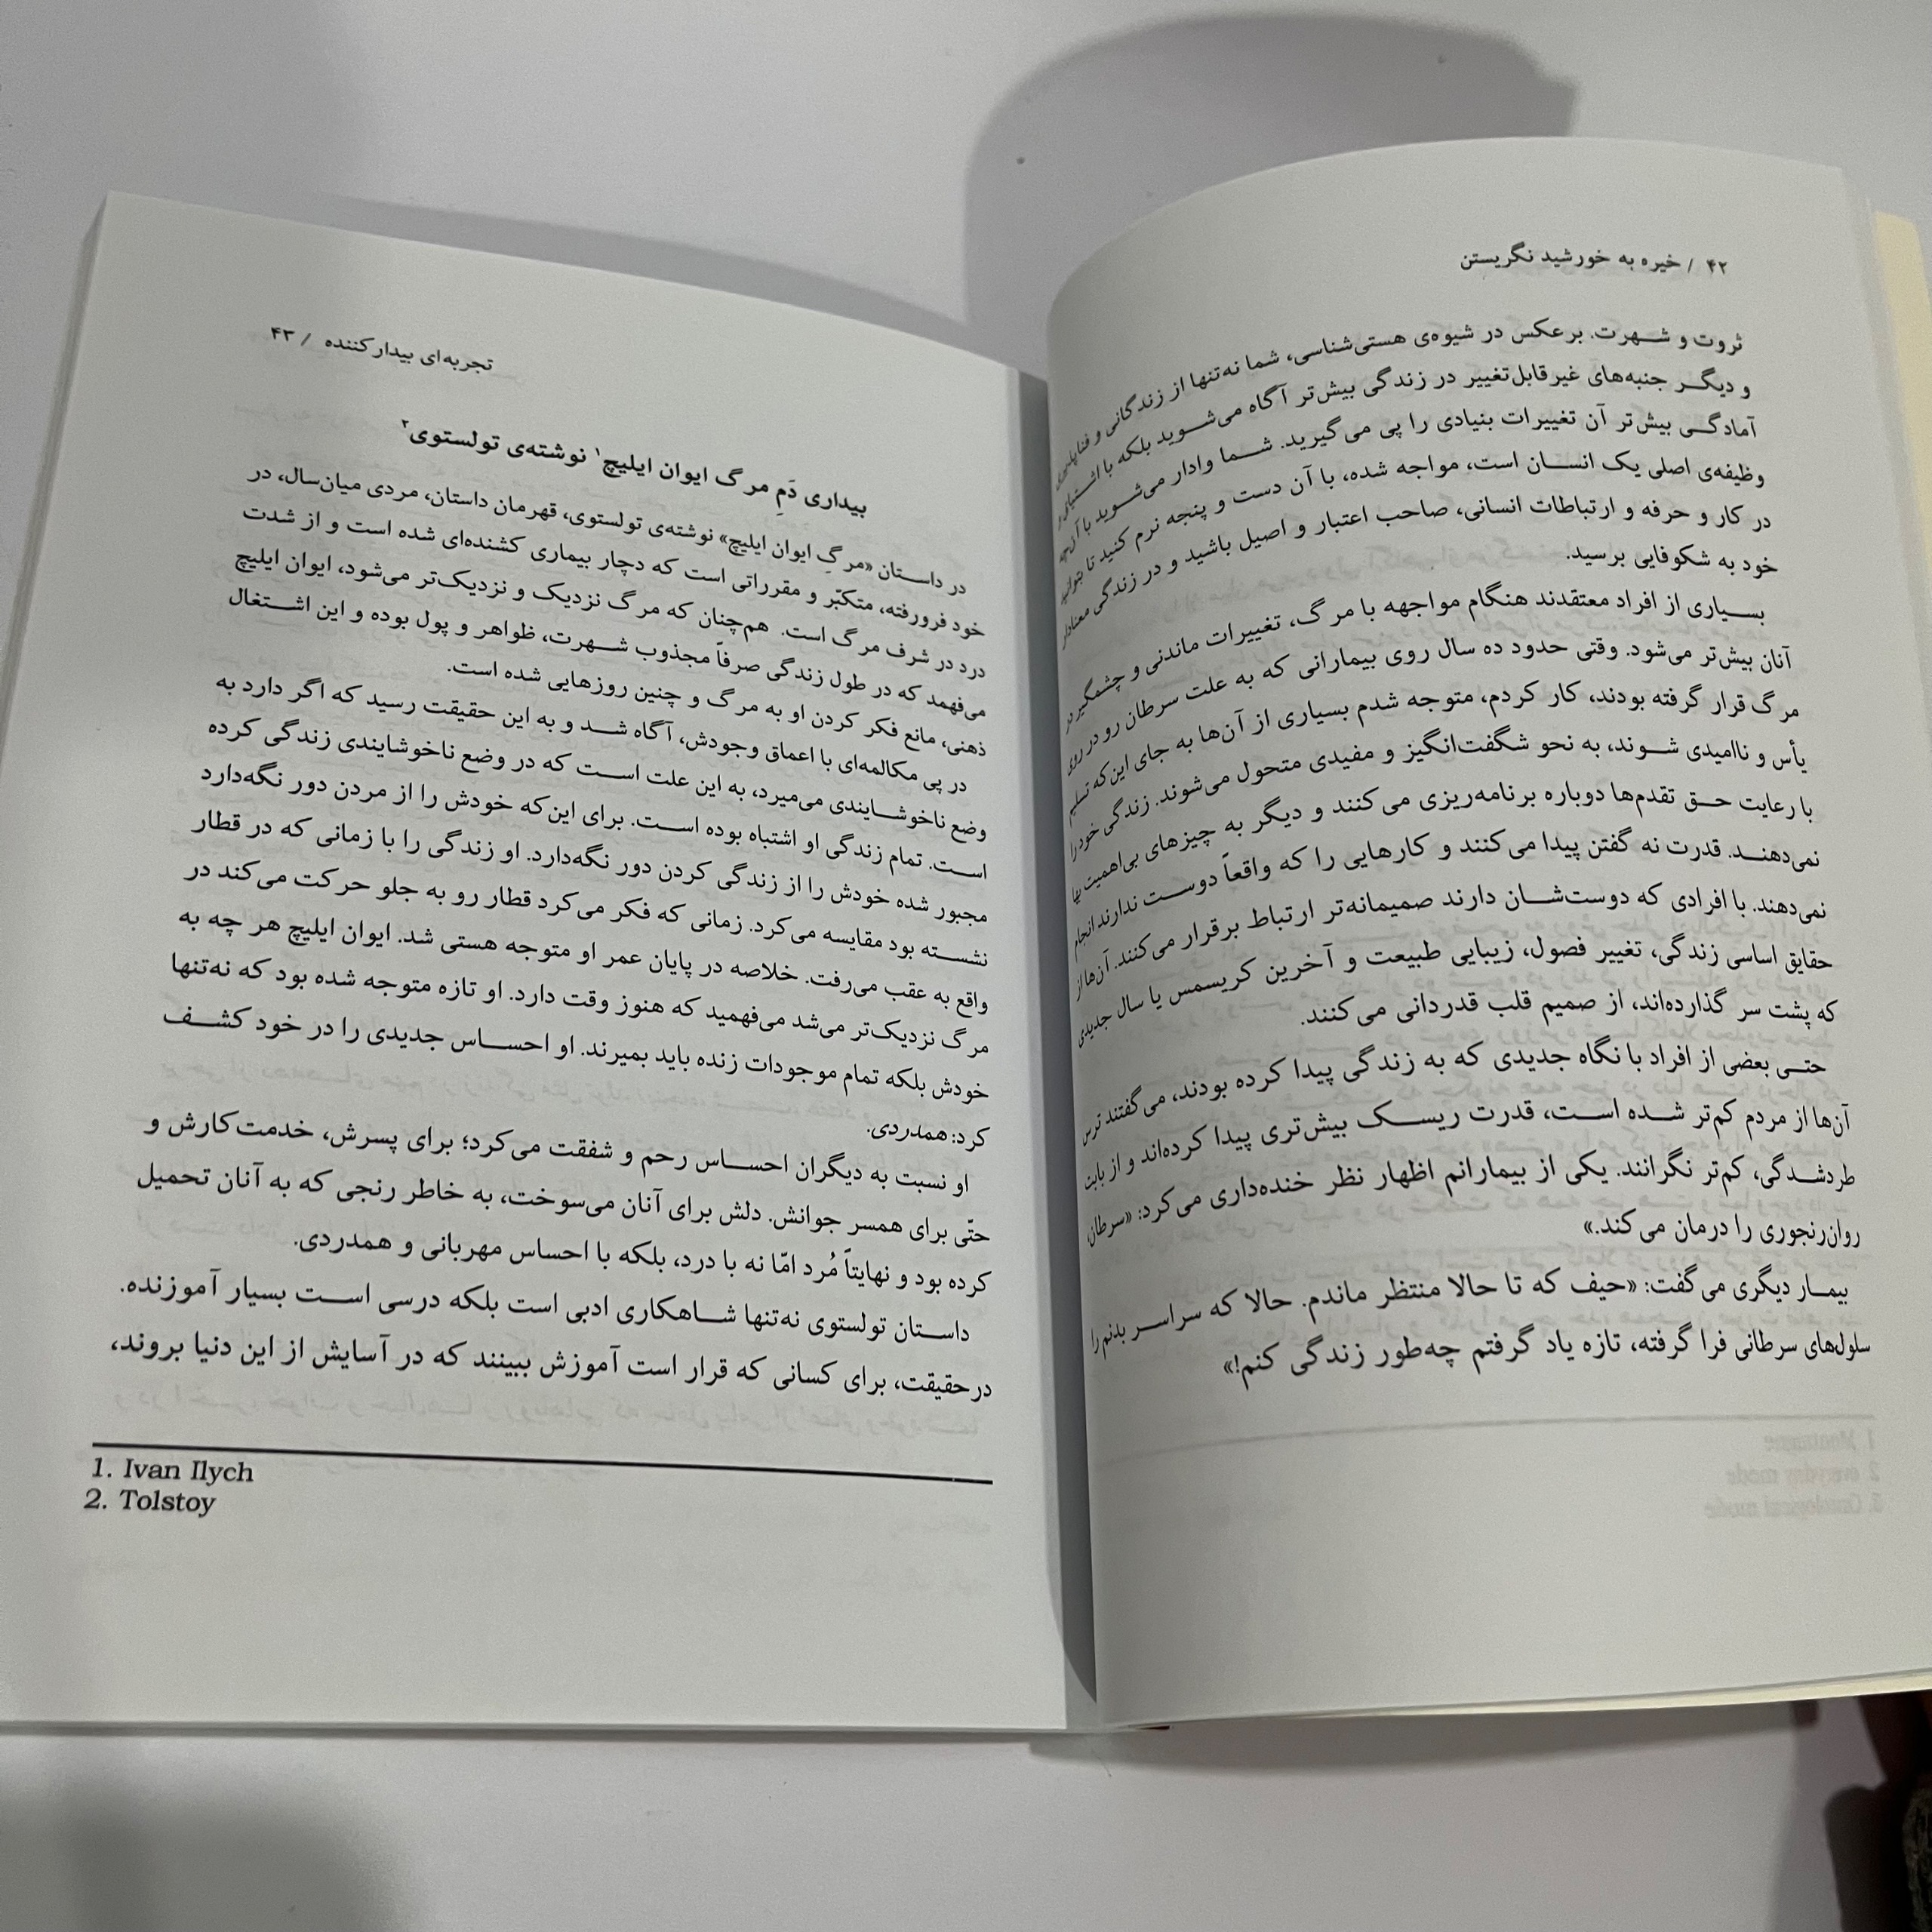 ۴۲ / خیره به خورشید نگریستن
ثروت و شهرت. برعکس در شیوه‌ی هستی‌شناسی، شما نه‌تنها از زندگانی و فناپذیری
و دیگر جنبه‌های غیرقابل‌تغییر در زندگی بیش‌تر آگاه می‌شوید بلکه با اشتیاق و
آمادگی بیش‌تر آن تغییرات بنیادی را پی می‌گیرید. شما وادار می‌شوید با آن‌چه
وظیفه‌ی اصلی یک انسان است، مواجه شده، با آن دست و پنجه نرم کنید تا بتوانید
در کار و حرفه و ارتباطات انسانی، صاحب اعتبار و اصیل باشید و در زندگی معنادار
خود به شکوفایی برسید.
بسیاری از افراد معتقدند هنگام مواجهه با مرگ، تغییرات ماندنی و چشمگیر در
آنان بیش‌تر می‌شود. وقتی حدود ده سال روی بیمارانی که به علت سرطان رو در روی
مرگ قرار گرفته بودند، کار کردم، متوجه شدم بسیاری از آن‌ها به جای این‌که تسلیم
یأس و ناامیدی شوند، به نحو شگفت‌انگیز و مفیدی متحول می‌شوند. زندگی خود را
با رعایت حق تقدم‌ها دوباره برنامه‌ریزی می‌کنند و دیگر به چیزهای بی‌اهمیت بها
نمی‌دهند. قدرت نه گفتن پیدا می‌کنند و کارهایی را که واقعاً دوست ندارند انجام
نمی‌دهند. با افرادی که دوست‌شان دارند صمیمانه‌تر ارتباط برقرار می‌کنند. آن‌ها از
حقایق اساسی زندگی، تغییر فصول، زیبایی طبیعت و آخرین کریسمس یا سال جدیدی
که پشت سر گذارده‌اند، از صمیم قلب قدردانی می‌کنند.
حتی بعضی از افراد با نگاه جدیدی که به زندگی پیدا کرده بودند، می‌گفتند ترس
آن‌ها از مردم کم‌تر شده است، قدرت ریسک بیش‌تری پیدا کرده‌اند و از بابت
طردشدگی، کم‌تر نگرانند. یکی از بیمارانم اظهار نظر خنده‌داری می‌کرد: «سرطان،
روان‌رنجوری را درمان می‌کند.»
بیمار دیگری می‌گفت: «حیف که تا حالا منتظر ماندم. حالا که سراسر بدنم را
سلول‌های سرطانی فرا گرفته، تازه یاد گرفتم چه‌طور زندگی کنم!»
تجربه‌ای بیدارکننده / ۴۳
بیداری دَمِ مرگ ایوان ایلیچ۱ نوشته‌ی تولستوی۲
در داستان «مرگِ ایوان ایلیچ» نوشته‌ی تولستوی، قهرمان داستان، مردی میان‌سال، در
خود فرورفته، متکبّر و مقرراتی است که دچار بیماری کشنده‌ای شده است و از شدت
درد در شرف مرگ است. هم‌چنان که مرگ نزدیک و نزدیک‌تر می‌شود، ایوان ایلیچ
می‌فهمد که در طول زندگی صرفاً مجذوب شهرت، ظواهر و پول بوده و این اشتغال
ذهنی، مانع فکر کردن او به مرگ و چنین روزهایی شده است.
در پی مکالمه‌ای با اعماق وجودش، آگاه شد و به این حقیقت رسید که اگر دارد به
وضع ناخوشایندی می‌میرد، به این علت است که در وضع ناخوشایندی زندگی کرده
است. تمام زندگی او اشتباه بوده است. برای این‌که خودش را از مردن دور نگه‌دارد
مجبور شده خودش را از زندگی کردن دور نگه‌دارد. او زندگی را با زمانی که در قطار
نشسته بود مقایسه می‌کرد. زمانی که فکر می‌کرد قطار رو به جلو حرکت می‌کند در
واقع به عقب می‌رفت. خلاصه در پایان عمر او متوجه هستی شد. ایوان ایلیچ هر چه به
مرگ نزدیک‌تر می‌شد می‌فهمید که هنوز وقت دارد. او تازه متوجه شده بود که نه‌تنها
خودش بلکه تمام موجودات زنده باید بمیرند. او احساس جدیدی را در خود کشف
کرد: همدردی.
او نسبت به دیگران احساس رحم و شفقت می‌کرد؛ برای پسرش، خدمت‌کارش و
حتّی برای همسر جوانش. دلش برای آنان می‌سوخت، به خاطر رنجی که به آنان تحمیل
کرده بود و نهایتاً مُرد امّا نه با درد، بلکه با احساس مهربانی و همدردی.
داستان تولستوی نه‌تنها شاهکاری ادبی است بلکه درسی است بسیار آموزنده.
درحقیقت، برای کسانی که قرار است آموزش ببینند که در آسایش از این دنیا بروند،
1. Ivan Ilych
2. Tolstoy